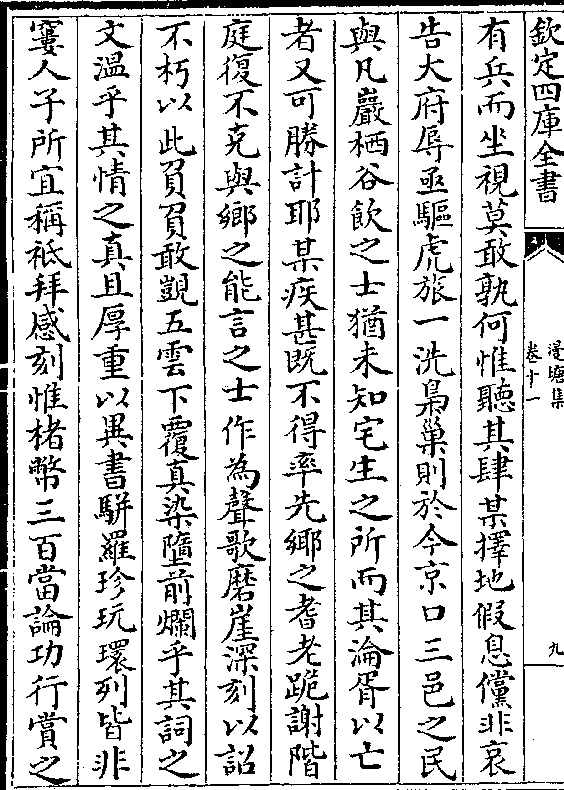 欽定四庫全書
漫塘集
卷十一
九
有兵而坐視莫敢孰何惟聽其肆某擇地假息儻非哀
告大府辱亟驅虎旅一洗梟巢則於今京口三邑之民
與凡巖栖谷飲之士猶未知宅生之所而其淪胥以亡
者又可勝計耶某疾甚既不得率先鄉之耆老跪謝階
庭復不克與鄉之能言之士作為聲歌磨崖深刻以詔
不朽以此負負敢覬五雲下覆真染墮前爛乎其詞之
文溫乎其情之真且厚重以異書駢羅珍玩環列皆非
窶人子所宜稱祗拜感刻惟楮幣三百當論功行賞之